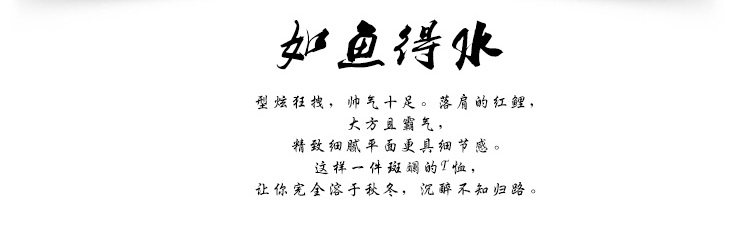 如鱼得水
型炫狂拽，帅气十足。落肩的红鲤，
大方且霸气，
精致细腻平面更具细节感。
这样一件斑斓的T恤，
让你完全溶于秋冬，沉醉不知归路。